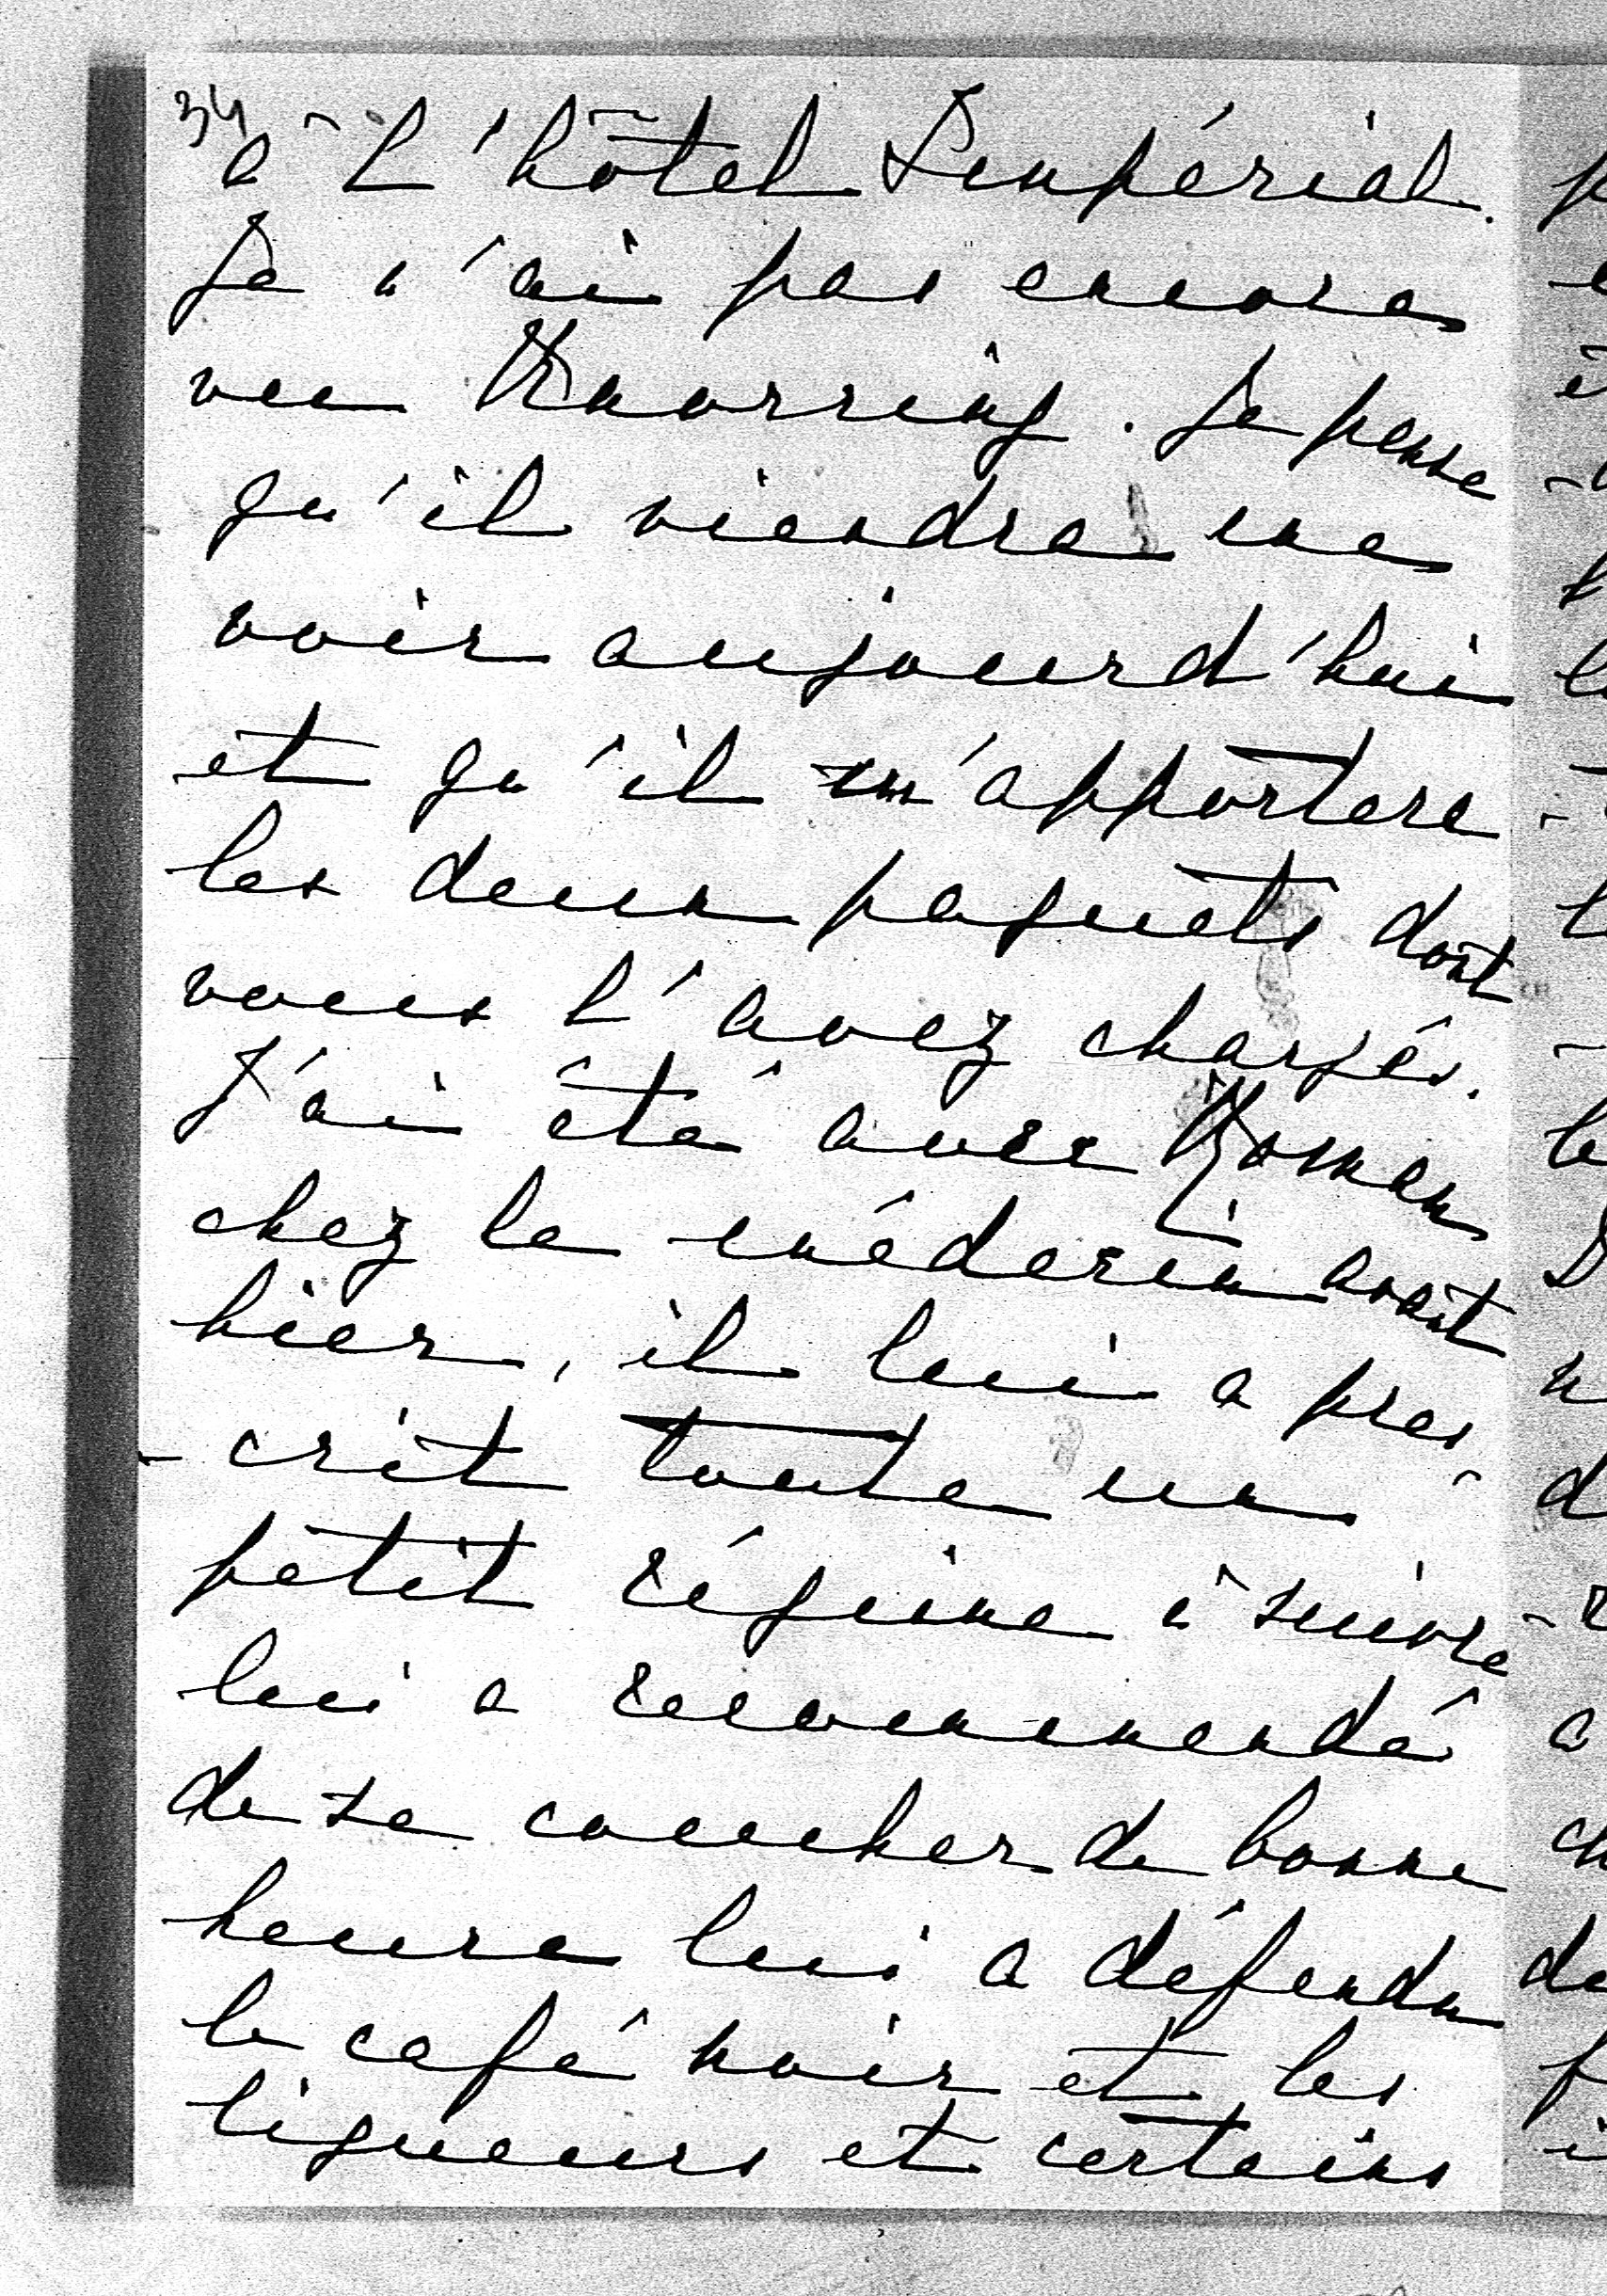 34
à l'hôtel Impérial.
Je n'ai pas encore
vu Knorring. Je pense
qu'il viendra me
voir aujourd'hui
et qu'il m'apportera
les deux paquets dont
vous l'avez chargés.
J'ai été avec Roman
chez le médecin avant
hier, il lui a pres
- crit toute un
petit régime à suivre
lui a recommandé
de se coucher de bonne
heure lui a défendu
le café noir et les
liqueurs et certains